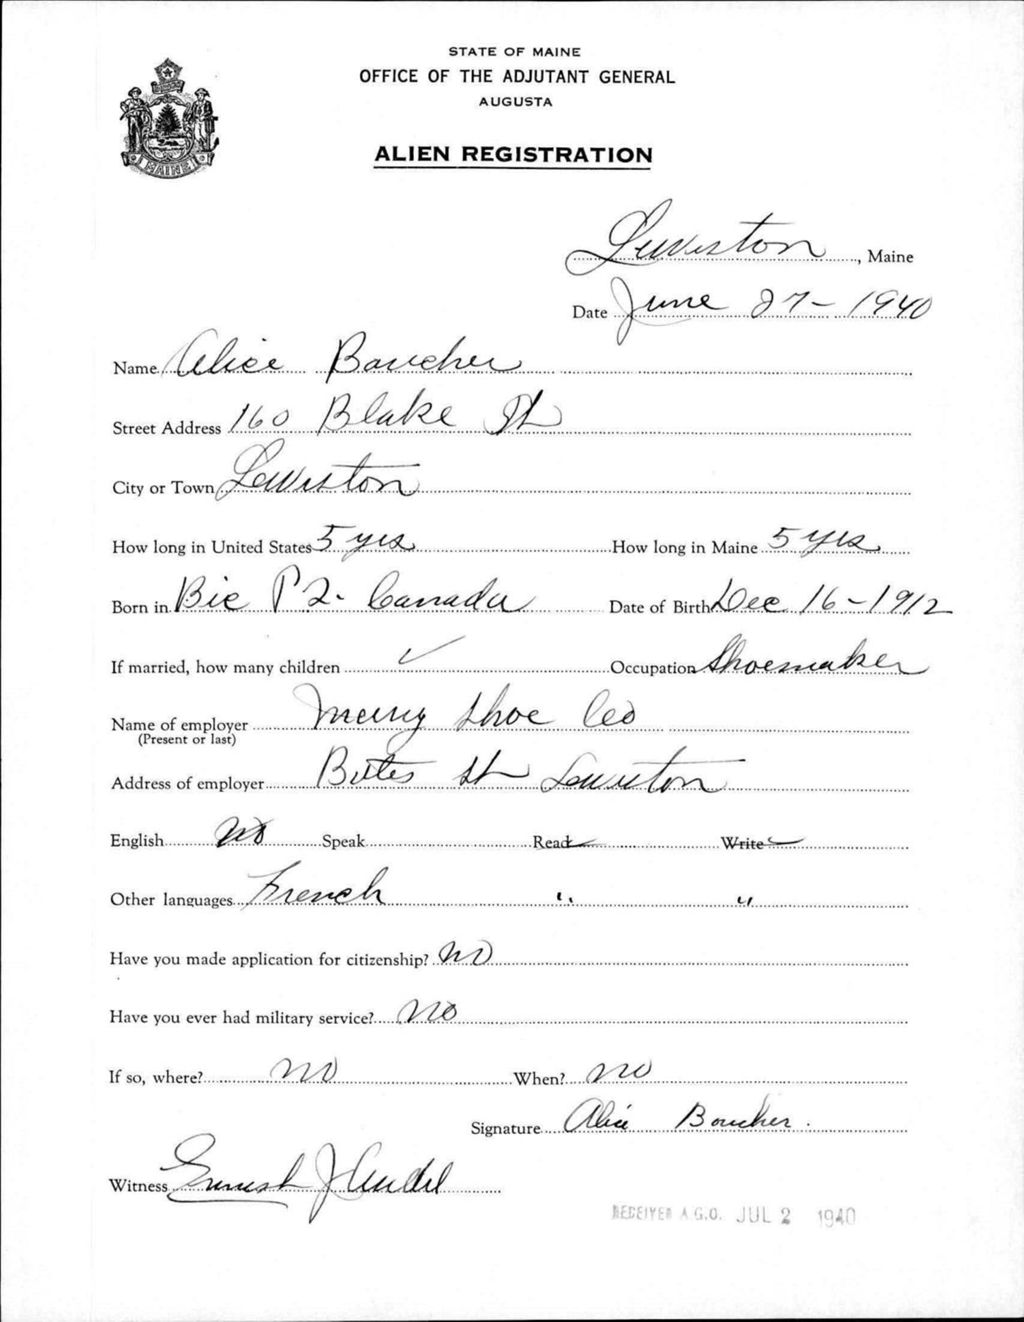 STATE OF MAINE
OFFICE OF THE ADJUTANT GENERAL
AUGUSTA
MAINE
ALIEN REGISTRATION
Lewiston, Maine
Date June 27 - 1940
Name Alice Boucher
Street Address 160 Blake St
City or Town Lewiston
How long in United States 5 yrs How long in Maine 5 yrs
Born in Bic P Q. Canada Date of Birth Dec 16 - 1912
If married, how many children ✓ Occupation Shoemaker
Name of employer Shoe Co
(Present or last)
Address of employer Bates St Lewiston
English No Speak Read Write
Other languages French " "
Have you made application for citizenship? No
Have you ever had military service? No
If so, where? No When? No
Signature Alice Boucher.
Witness J
RECEIVED A.G.O. JUL 2 1940